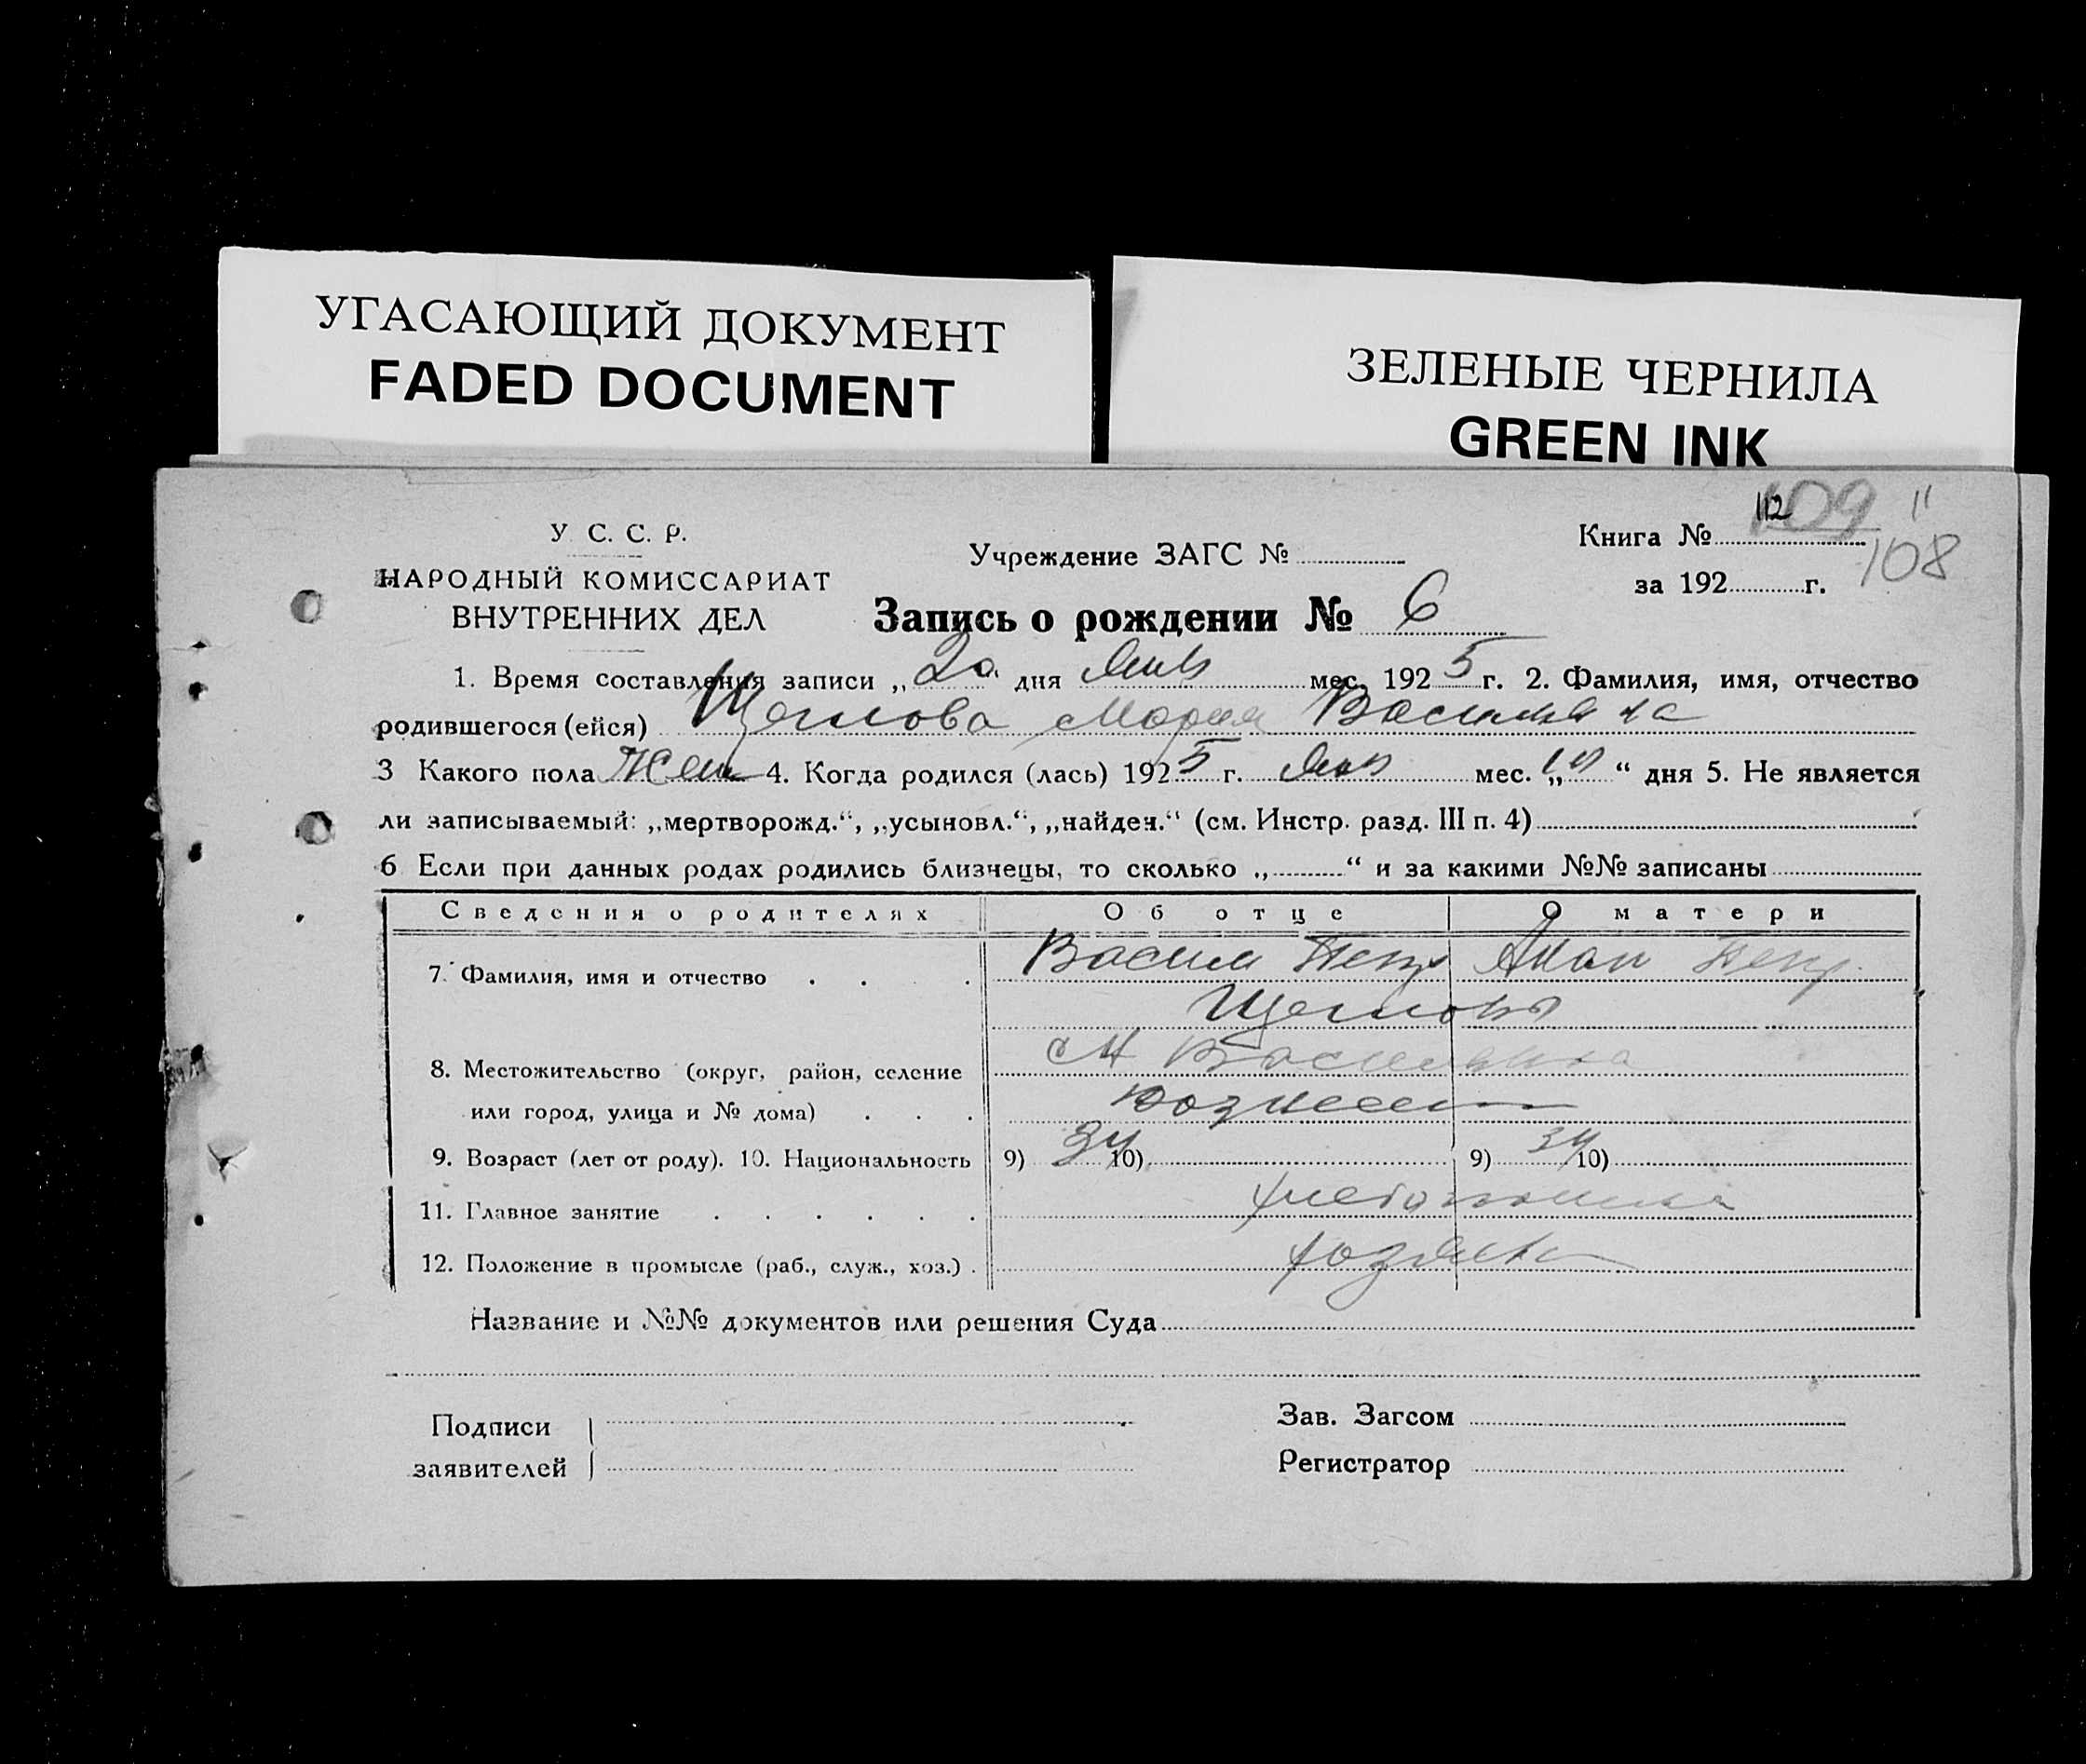 УГАСАЮЩИЙ ДОКУМЕНТ
FADED DOCUMENT
ЗЕЛЕНЫЕ ЧЕРНИЛА
GREEN INK
У. С. С. Р.
НАРОДНЫЙ КОМИССАРИАТ
ВНУТРЕННИХ ДЕЛ
Учреждение ЗАГС №
Книга № 112 109 11
за 192 г. 108
Запись о рождении № 6
1. Время составления записи „20“ дня Янв мес. 1925 г. 2. Фамилия, имя, отчество
родившегося (ейся) Мария
3 Какого пола Жен 4. Когда родился (лась) 1925 г. Янв мес. „ “ дня 5. Не является
ли записываемый: „мертворожд.“, „усыновл.“, „найден.“ (см. Инстр. разд. III п. 4)
6 Если при данных родах родились близнецы, то сколько „ “ и за какими №№ записаны
Сведения о родителях Об отце О матери
7. Фамилия, имя и отчество Васили Петр Петр.
8. Местожительство (округ, район, селение
или город, улица и № дома)
9. Возраст (лет от роду). 10. Национальность 9) 34 10) 9) 34 10)
11. Главное занятие
12. Положение в промысле (раб., служ., хоз.) хозяин
Название и №№ документов или решения Суда
Подписи
заявителей
Зав. Загсом
Регистратор